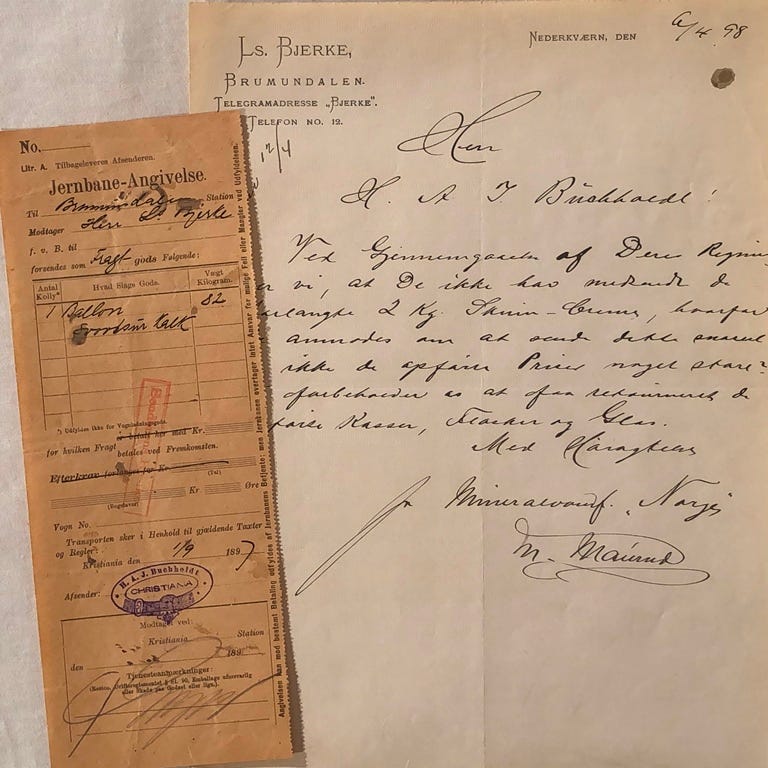 No.
Litr. A. Tilbageleveres Afsenderen.
Jernbane-Angivelse.
Til Brumunddalen Station
Modtager Herr Ls Bjerke
f. v. B. til
forsendes som Fragt gods Følgende:
Antal Kolly* Hvad Slags Gods. Vægt Kilogram.
1 Ballon 82
Kalk
*) Udfyldes ikke for Vognladningsgods.
er betalt her med Kr.
for hvilken Fragt
betales ved Fremkomsten.
Efterkrav forlanges for Kr.
(Tal)
Kr Øre
(Bogstaver)
Vogn No.
Transporten sker i Henhold til gjældende Taxter
og Regler.
Kristiania den 1/9 1897
H. A. J. Buchholdt
CHRISTIANIA
Afsender:
Modtaget ved:
Kristiania Station
den 189
Tjenesteanmærkninger:
Angivelsen kan mod bestemt Betaling udfyldes af Jernbanens Betjente; men Jernbanen overtager intet Ansvar for mulige Feil eller Mangler ved Udfyldelsen.
Ls. Bjerke,
Brumundalen.
Telegramadresse „Bjerke".
Telefon No. 12.
12/4
Nederkværn, den 6/4 98
Herr
H. A. J. Buchholdt!
Ved Gjennemgaaelse af Deres
vi, at De ikke har medsendt de
2 Kg. Skum-Creme, hvorfor
anmodes om at sende dette snarest
ikke de opførte Priser noget store?
forbeholder os at faa returneret de
Kasser, Flasker og Glas.
Med Høiagtelse
Mineralvandf. „Norge"